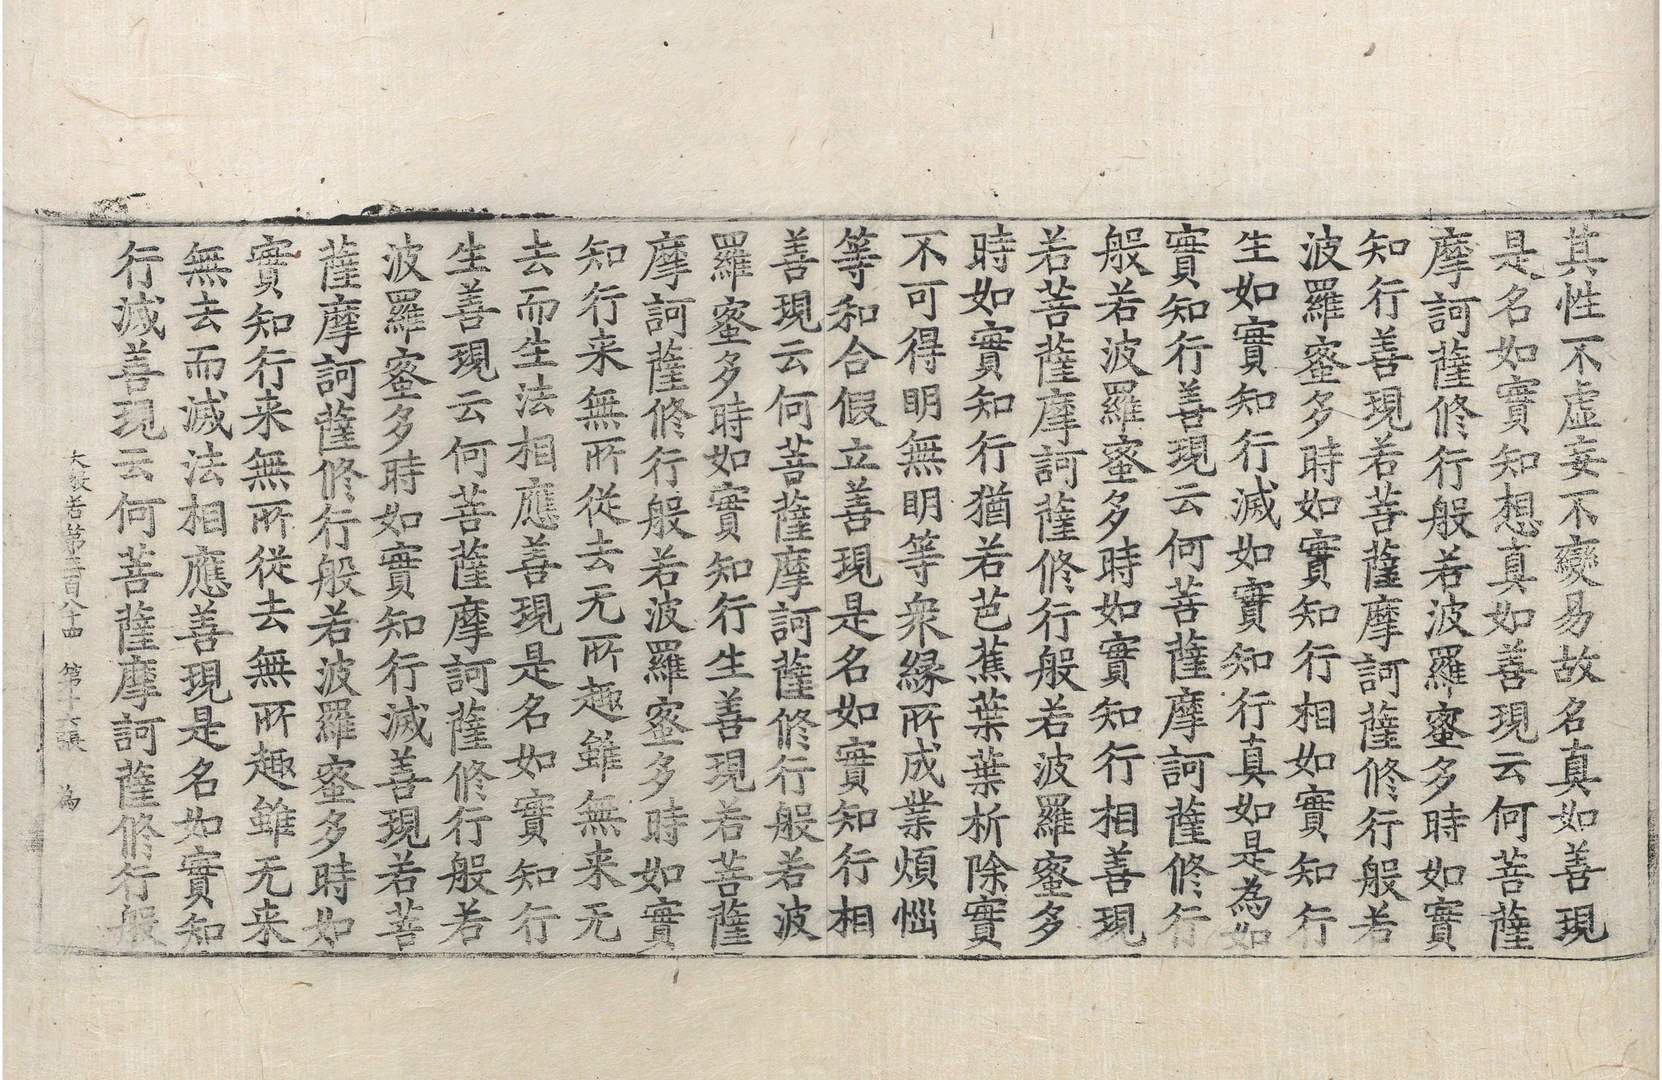 其性不虛妄不變易故名真如善現
是名如實知想真如善現云何菩薩
摩訶薩修行般若波羅蜜多時如實
知行善現若菩薩摩訶薩修行般若
波羅蜜多時如實知行相如實知行
生如實知行滅如實知行真如是為如
實知行善現云何菩薩摩訶薩修行
般若波羅蜜多時如實知行相善現
若菩薩摩訶薩修行般若波羅蜜多
時如實知行猶若芭蕉葉葉析除實
不可得明無明等衆緣所成業煩惱
等和合假立善現是名如實知行相
善現云何菩薩摩訶薩修行般若波
羅蜜多時如實知行生善現若菩薩
摩訶薩修行般若波羅蜜多時如實
知行来無所從去无所趣雖無来无
去而生法相應善現是名如實知行
生善現云何菩薩摩訶薩修行般若
波羅蜜多時如實知行滅善現若菩
薩摩訶薩修行般若波羅蜜多時如
實知行来無所從去無所趣雖无来
無去而滅法相應善現是名如實知
行滅善現云何菩薩摩訶薩修行般
大般若第三百八十四 第十六張 為